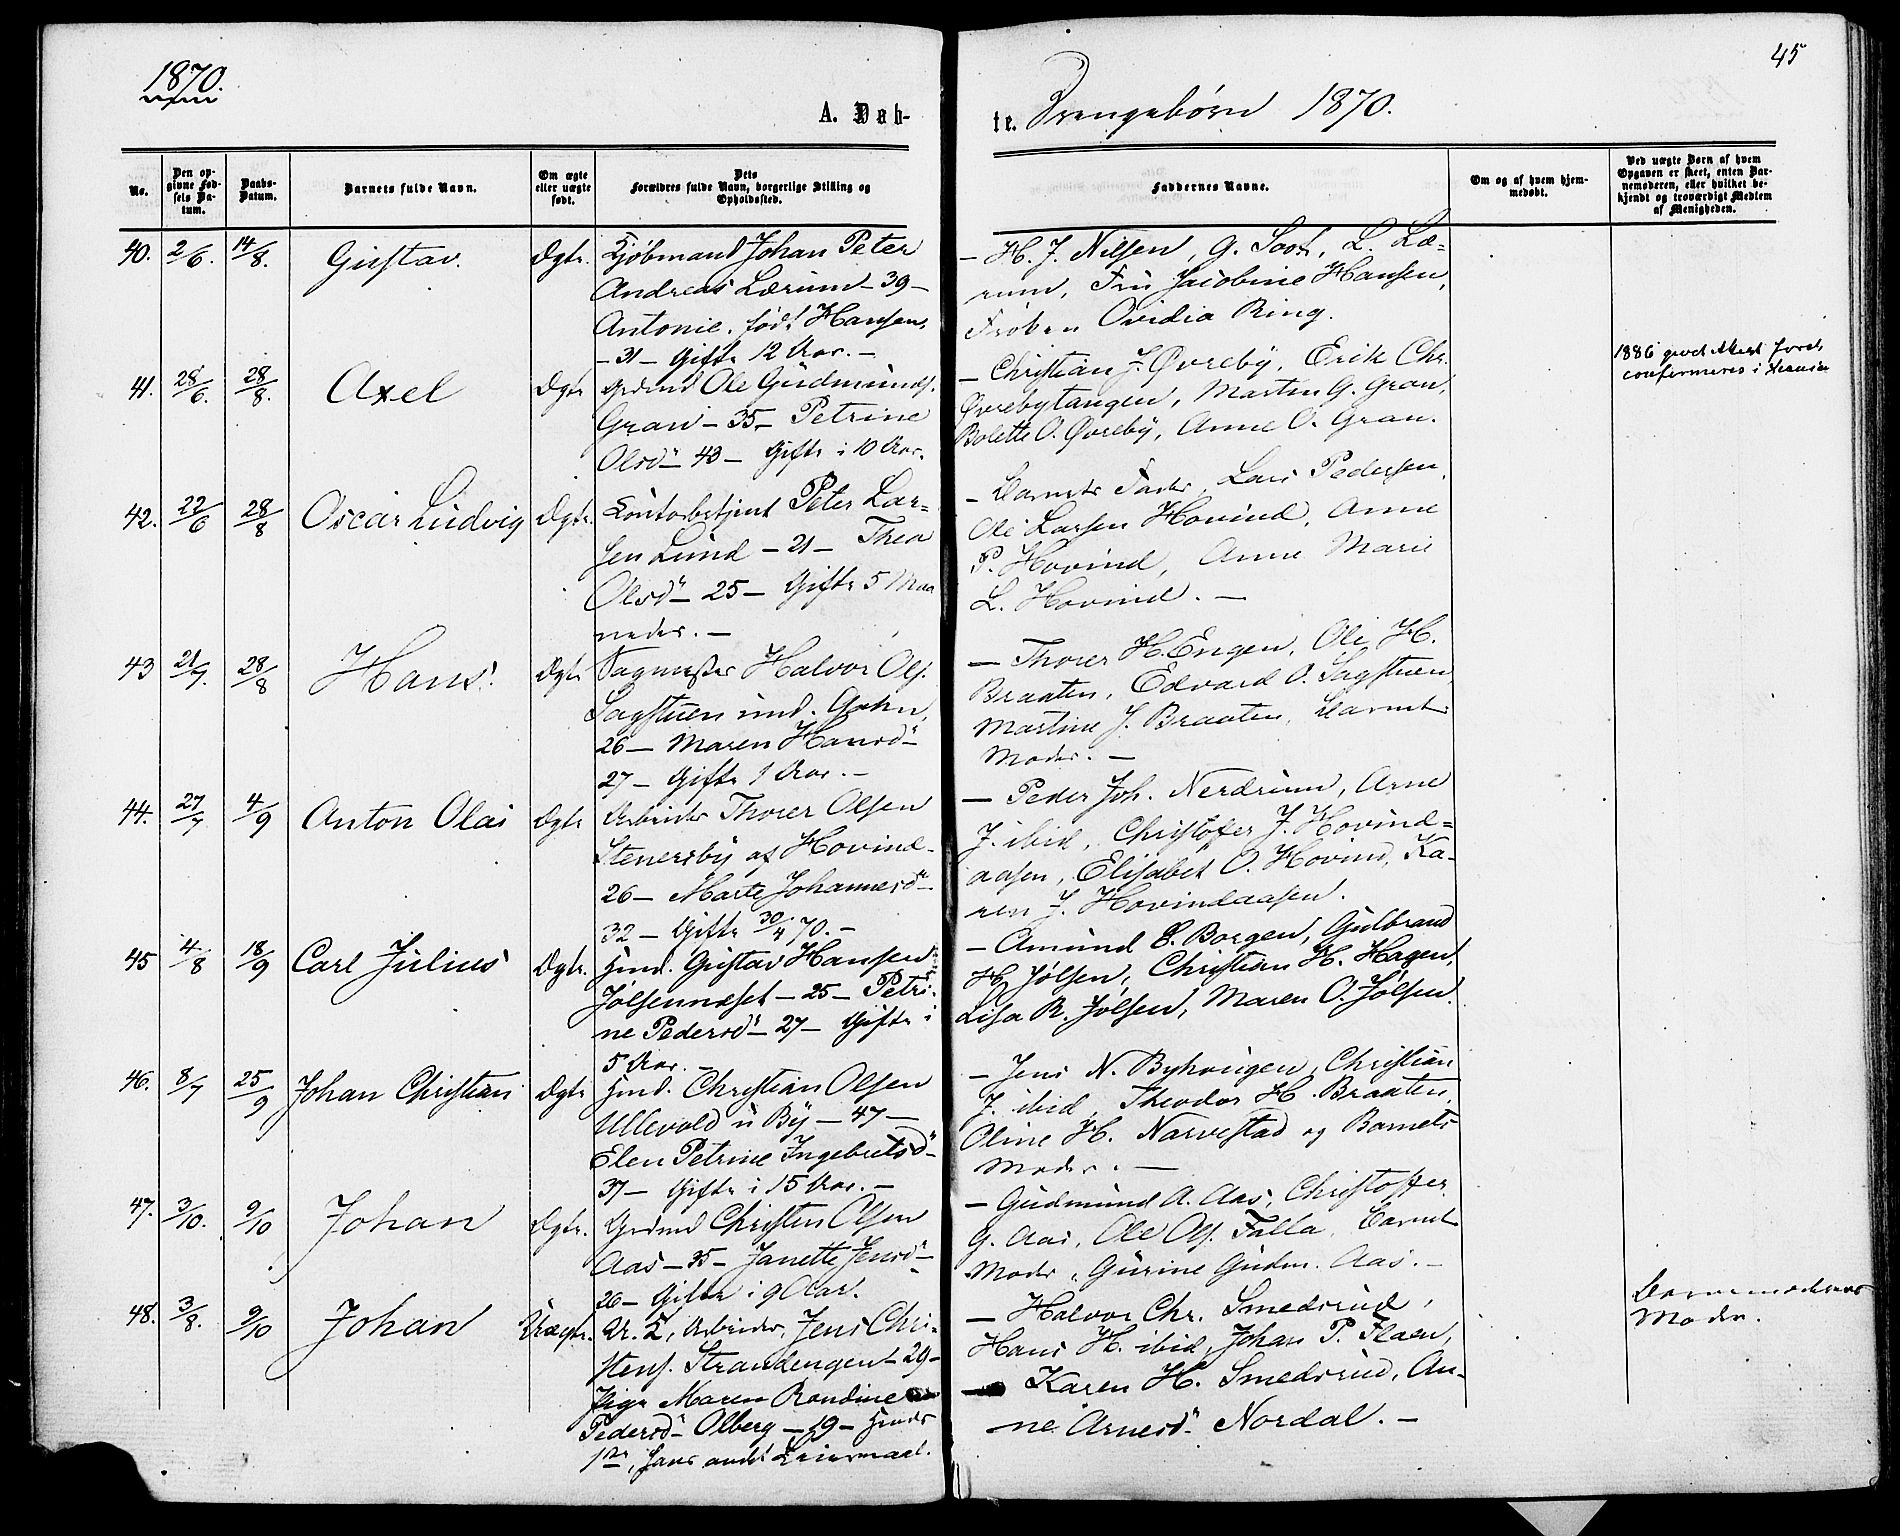 1870.
A. Døb-
No.
Den op-
givne Fød-
sels Da-
tum.
Daabs-
Datum.
Barnets fulde Navn.
Om ægte
eller uægte
født.
Dets
Forældres fulde Navn, borgerlige Stilling og
Opholdssted.
40. 2/6. 14/8. Gustav. Ægte. Kjøbmand Johan Peter
Andreas Lærum - 39 -
Antonie, født Hansen,
- 31 - Gifte 12 Aar. -
41. 28/6. 28/8. Axel Ægte Grdmd Ole Gudmunds.
Gran - 35 - Petrine
Olsd - 43 - Gifte i 10 Aar.
42. 22/6 28/8 Oscar Ludvig Ægte. Contorbetjent Peter Lar=
sen Lund - 21 - Thea
Olsd - 25 - Gifte 5 Maa
neder. -
43 21/7. 28/8 Hans. Ægte Sagmester Halvor Ols.
Sagstuen und.
26 - Maren Hansd -
27 - Gifte 1 Aar. -
44. 27/7 4/9 Anton Olai Ægte Arbeider Thorer Olsen
Stenersby af Hovind -
26 - Marte Johannesd -
32 - Gifte 30/4 70. -
45 4/8 18/9 Carl Julius Ægte. Hmd. Gustav Hansen
Jølsennæset - 25 - Petri-
ne Pedersd - 27 - Gifte i
5 Aar. -
46. 8/7 25/9 Johan Christian Ægte Hmd. Christian Olsen
Ullevold u By - 47 -
Elen Petrine Ingebretsd -
37 - Gifte i 15 Aar. -
47. 3/10. 9/10 Johan Ægte. Grdmd Christen Olsen
Aas - 35 - Janette Jensd -
26 - Gifte i 9 Aar.
48. 3/8. 9/10 Johan Uægte. Arbeider, Jens Chri-
stens. Strandengen - 29 -
Pige Maren Randine
Pedersd Olberg - 19 - Hendes
1ste, hans andet Leiermaal.
45
te. Drengebørn 1870.
Faddernes Navne.
Om og af hvem hjem-
medøbt.
Ved uægte Børn af hvem
Opgaven er skeet, enten Bar-
nemoderen, eller hvilket be-
kjendt og troværdigt Medlem
af Menigheden.
- H. J. Nilsen, G. Soot, L. Læ=
rum, Fru Jacobine Hansen,
Frøken Ovidia Ring.
- Christian J. Øvreby, Erik Chr.
Øvrebytangen, Martin G. Gran,
Bolette O. Øvreby, Anne O. Gran.
1886
confirmeres i
- Barnets Fader, Lars Pedersen,
Ole Larsen Hovind, Anne
P. Hovind, Anne Marie
L. Hovind. -
- Thorer H. Engen, Ole H.
Braaten, Edvard O. Sagstuen,
Martine J. Braaten, Barnets
Moder. -
- Peder Joh. Nerdrum, Arne
J. ibid, Christofer J. Hovind=
aasen, Elisabet O. Hovind, Ka-
ren J. Hovindaasen.
- Amund E. Borgen, Gulbrand
H. Jølsen, Christian H. Hagen,
Lisa R. Jølsen, Maren O. Jølsen.
- Jens N. Byhaugen, Christian
J. ibid, Theodor H. Braaten,
Oline H. Narvestad og Barnets
Moder. -
- Gudmund A. Aas, Christoffer
G. Aas, Ole Ols. Falla, Barnets
Moder, Gurine Gudm. Aas. -
- Halvor Chr. Smedsrud,
Hans H. ibid, Johan P. Flaen,
Karen H. Smedsrud, An-
ne Arnesd Nordal. -
Barnemoderens
Moder.